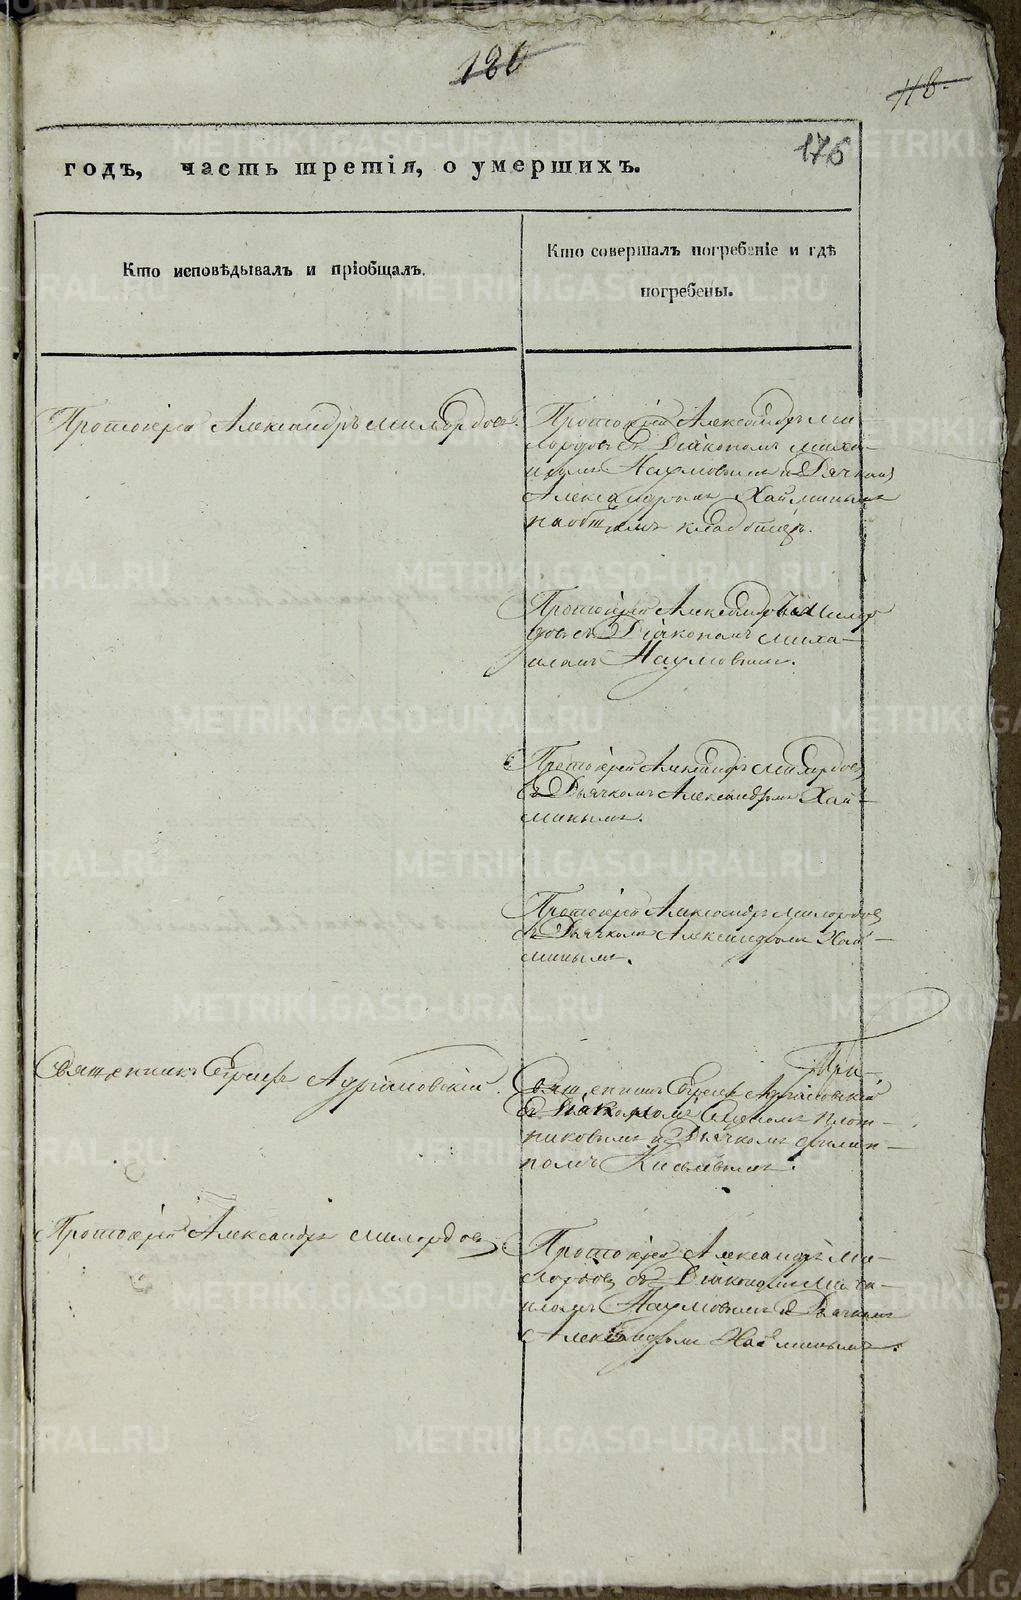 186
118.
176
годѣ, часть третія, о умершихъ.
Кто исповѣдывалъ и пріобщалъ.
Кто совершалъ погребеніе и гдѣ
погребены.
Протоіерей Александръ Милордовъ.
Протоіерей Александръ Ми-
лордовъ съ Діакономъ Миха-
иломъ Наумовымъ и Дьячком
Александромъ Хайминымъ
на общемъ кладбищѣ.
Протоіерей Александръ Милор
довъ съ Діакономъ Миха-
иломъ Наумовымъ.
Протоіерей Александръ Милордовъ
съ Дьячкомъ Александромъ Хай-
минымъ.
Протоіерей Александръ Милордовъ
съ Дьячкомъ Александромъ Хай-
минымъ.
Священникъ Евграфъ
Священникъ Евграфъ
съ Діакономъ Плот-
никовымъ и Дьячкомъ Филип-
помъ
Протоіерей Александръ Милордовъ
Протоіерей Александръ Ми-
лордовъ съ Діакономъ Миха-
иломъ Наумовымъ и Дьячкомъ
Александромъ Хайминымъ.
METRIKI.GASO-URAL.RU